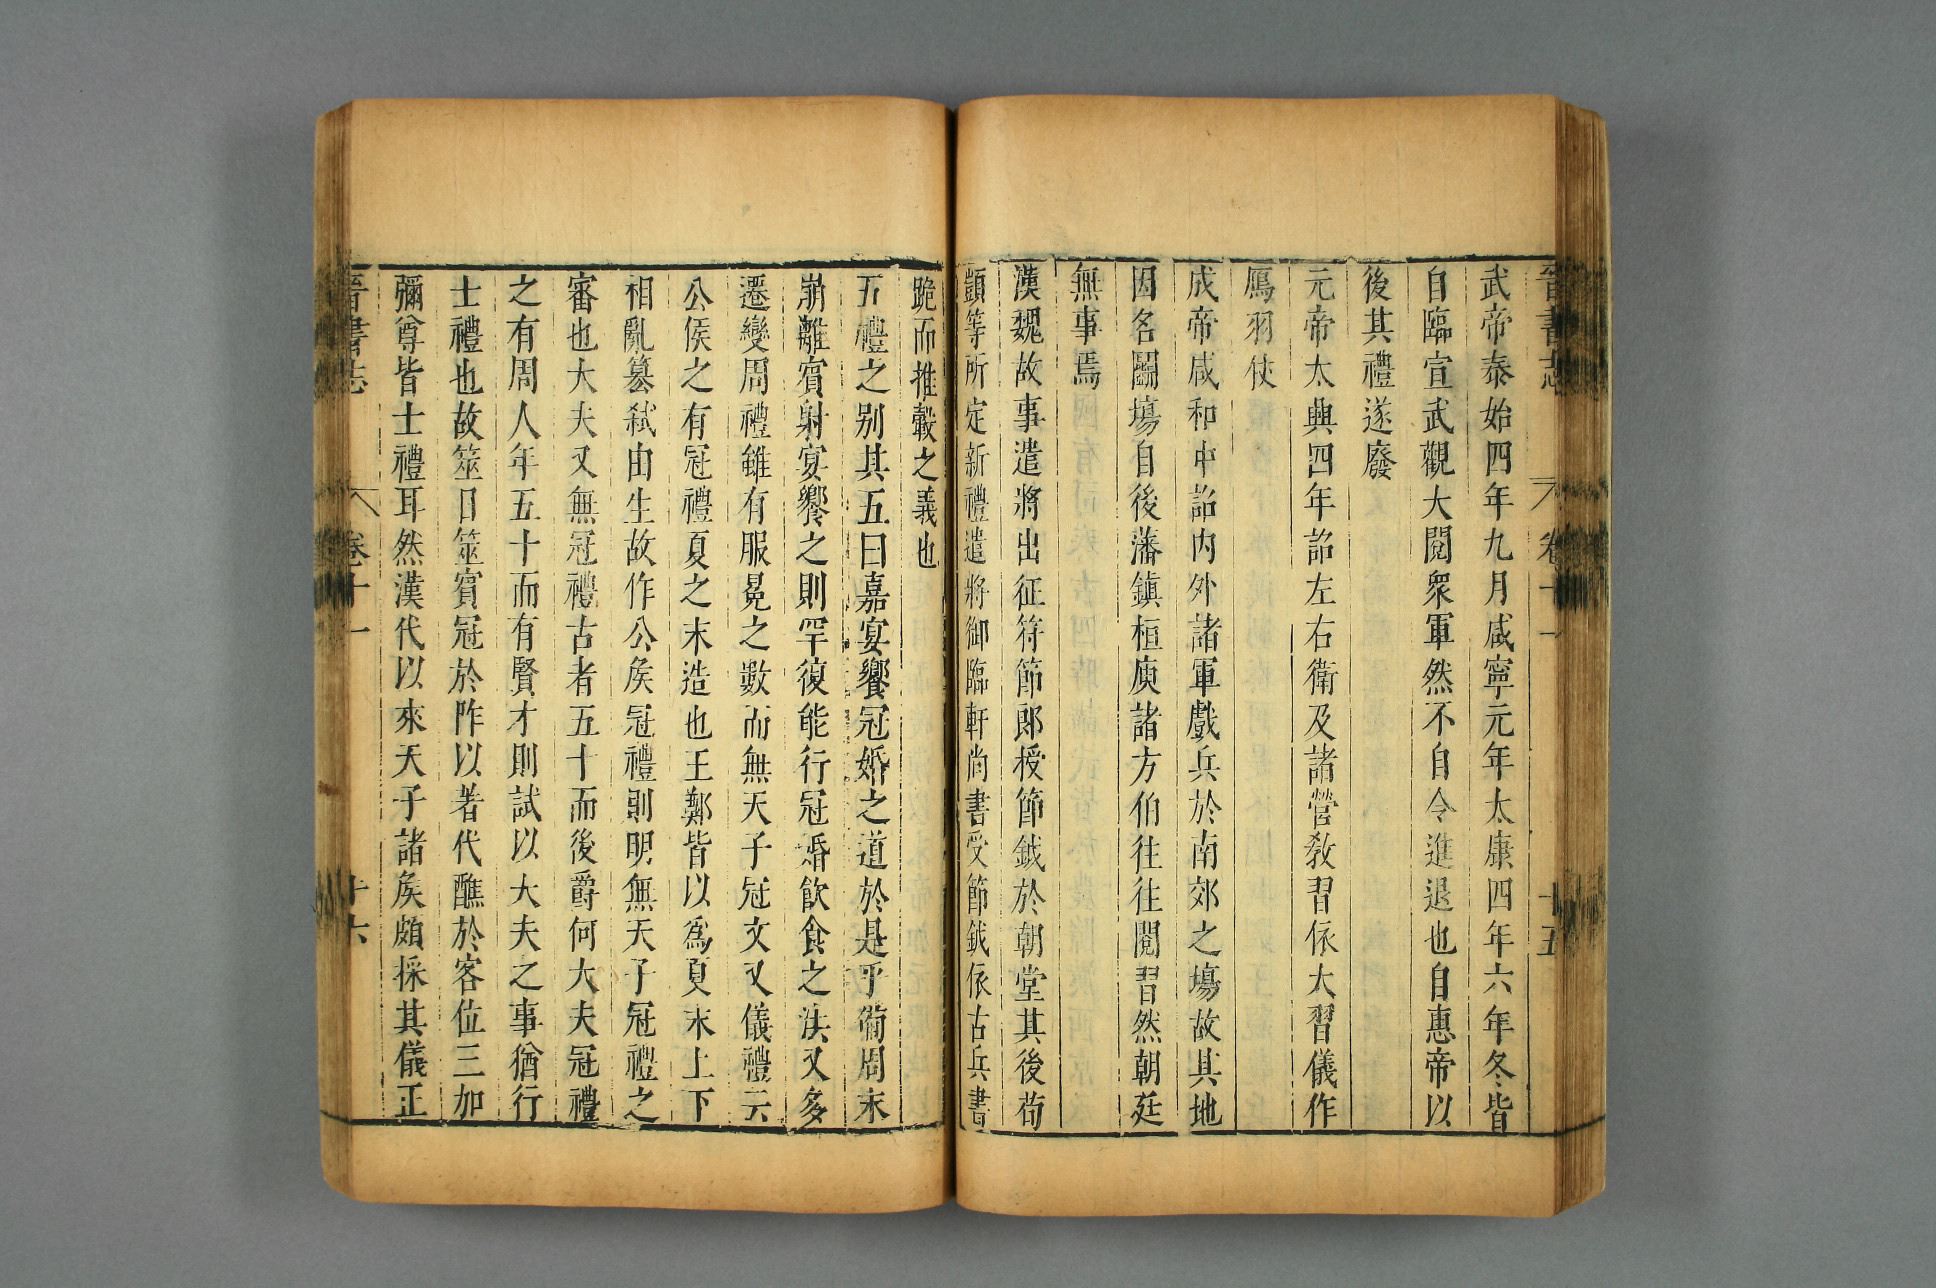 晉書志 卷十一 十五
武帝泰始四年九月咸寧元年太康四年六年冬皆
自臨宣武觀大閱衆軍然不自令進退也自惠帝以
後其禮遂廢
元帝太興四年詔左右衛及諸營教習依大習儀作
鴈羽仗
成帝咸和中詔內外諸軍戲兵於南郊之塲故其地
因名鬬塲自後藩鎮桓庾諸方伯往往閱習然朝廷
無事焉
漢魏故事遣將出征符節郎授節鉞於朝堂其後荀
顗等所定新禮遣將御臨軒尚書受節鉞依古兵書
跪而推轂之義也
五禮之别其五曰嘉宴饗冠婚之道於是乎備周末
崩離賓射宴饗之則罕復能行冠婚飲食之法又多
遷變周禮雖有服冕之數而無天子冠文又儀禮云
公侯之有冠禮夏之末造也王鄭皆以爲夏末上下
相亂篡弒由生故作公矦冠禮則明無天子冠禮之
審也大夫又無冠禮古者五十而後爵何大夫冠禮
之有周人年五十而有賢才則試以大夫之事猶行
士禮也故筮日筮賓冠於阼以著代醮於客位三加
彌尊皆士禮耳然漢代以來天子諸矦頗採其儀正
晉書志 卷十一 十六